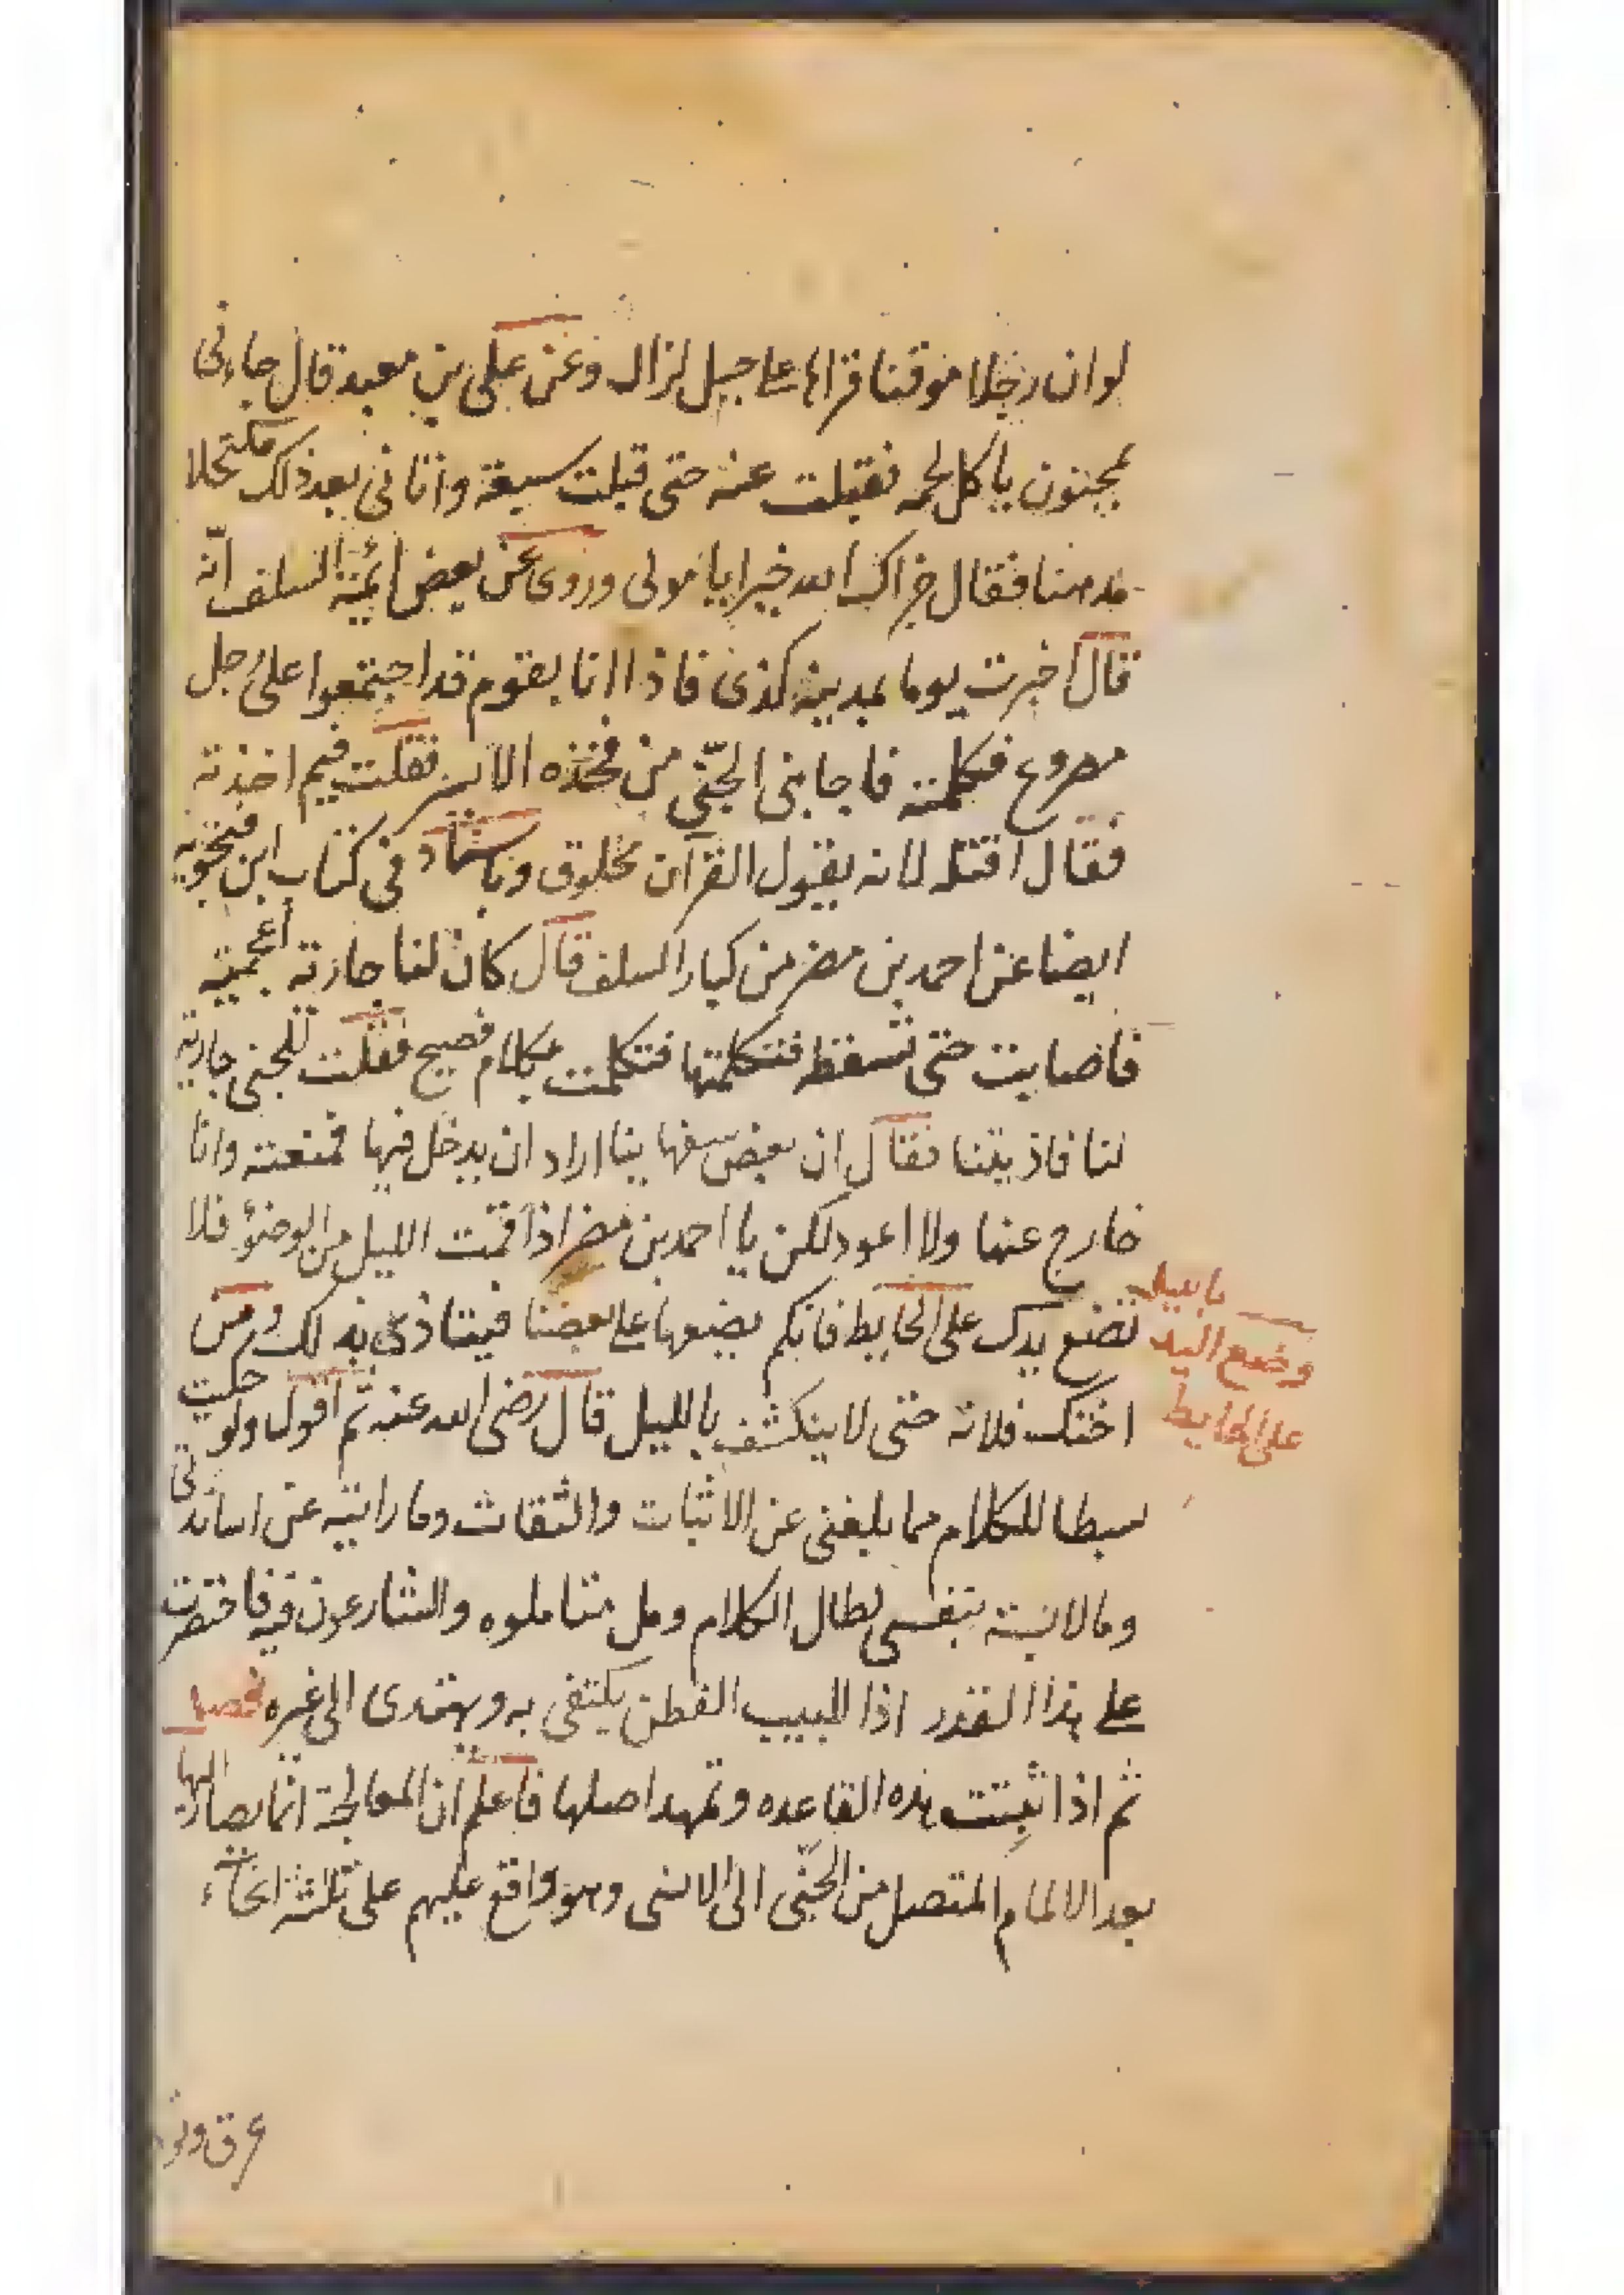 لو ان رجلا موقنا قراها على جبل لزال وعن على بن معبد قال جاءنى
بمجنون ياكل لحمه فقبلت عنه حتى قبلت سبعة واتانى بعد ذلك مكتحلا
مدهنا فقال جزاك الله خيرا يا مولى وروى عن بعض ائمة السلف انه
قال اخبرت يوما بمدينة كذى فاذا انا بقوم قد اجتمعوا على رجل
مصروع فكلمته فاجابنى الجنّى من فخذه الايسر فقلت فيم اخذته
فقال اقتله لانه يقول القرآن مخلوق وباسناد فى كتاب ابن فنجويه
ايضا عن احمد بن نصر من كبار السلف قال كان لنا جارية اعجمية
فاصابت حتى تسقط فتكلمتها فتكلمت بكلام فصيح فقلت للجنى جارية
لنا فاذيتنا فقال ان بعض سفهاينا اراد ان يدخل فيها فمنعته وانا
خارج عنها ولا اعود لكن يا احمد بن نصر اذا قمت الليل من الوضوء فلا
تضع يدك على الحايط فانكم يضعها على بعضنا فيتاذى بذلك ومن
اختك فلانه حتى لا ينكشف بالليل قال رضى الله عنه ثم اقول ولو حكيت
بسطا للكلام مما بلغنى عن الاثبات والثقات وما رايته عن اساتذتى
وما لابسته بنفسى لطال الكلام ومل متاملوه والشارعون فيه فاختصرت
على هذا القدر اذا اللبيب الفطن يكتفى به ويهتدى الى غيره فصل
ثم اذا ثبتت هذه القاعده وتمهد اصلها فاعلم ان المعالجة انما يصار اليها
بعد الالمام المتصل من الجنّى الى الانسى وهو واقع عليهم على ثلثة انحاء
وضع اليد
على الحايط